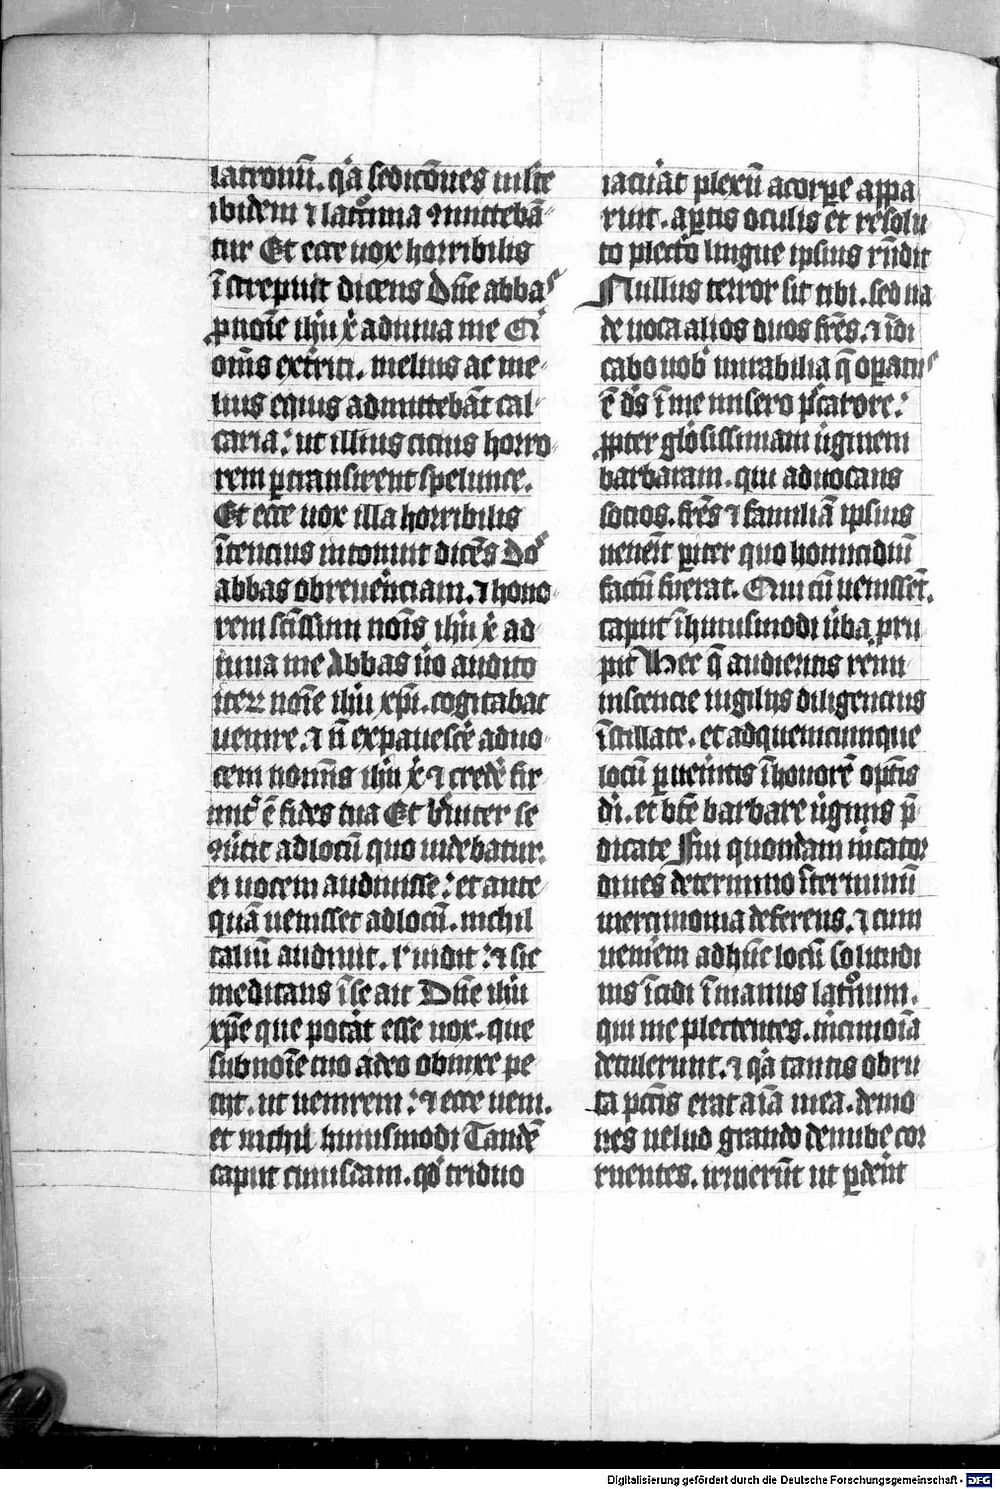 latronū. qͣ sedicōnes miste
ibidem ⁊ latͦcinia ꝯmittebā-
tur Et ecce uox horribilis
īcrepuit dicens Dn̄e abbaˢ
ꝓ noīe ihū xͥ adiuua me Et
om̄s exterriti. melius ac me-
lius equis admittebāt cal-
caria: ut illius citius horro-
rem ꝑtransirent spelunce.
Et ecce uox illa horribilis
ītencius intonuit dicēs Do
abbas ob reuerēnciam. ⁊ hono-
rem scīssimi noīs ihū xͥ ad
iuua me Abbas ūo audito
iteꝝ noīe ihū xp̄i. cogitabat
uenire. ⁊ n̄ expauescē ad uo-
cem noīnis ihū xͥ ⁊ credē fir
mitͤ ē fides tua Et uiriliter se
ꝯūtit ad locū quo uidebatur.
ei uocem audiuisse: et ante-
quā uenisset ad locū. nichil
taliū audiuit. lͥ uidit: ⁊ sic
meditans īse ait Dn̄e ihū
xp̄e que potāt esse uox. que
sub noīe tuo adeo obnixe pe
tijt. ut uenirem: ⁊ ecce ueni.
et nichil huiusmodi Tandē
caput cuiusdam. qͦ triduo
iacuāt plexū a corꝑe appa
ruit. aꝑtis oculis et resolu
to plectͦ lingue ipsius rn̄dit
Nullus terror sit tibi. sed ua
de uoca alios duos fr̄es. ⁊ īdi
cabo uobͥ mirabilia q̄ oꝑatuˢ
ē ds̄ ī me misero pͨcatore:
ꝓpter glōsissimam ūginem
barbaram. qui aduocans
socios. fr̄es ⁊ familiā ipsius
uenērt ꝑiter quo homicidiū
factū fuerat. Qui cū uenissēt.
caput ī huiusmodi ūba pru
pit Hec q̄ audieritis remi
niscencie uigilijs diligencius
īstillate. et ad quemcumque
locū ꝑueneritis ī honorē opn̄tis
di. et bt̄e barbare ūginis p̄
dicate Fui quondam mcator
diues de termino ī terminū
mercimonia deferens. ⁊ cum
uenirem ad hūc locū solitudi
nis īcidi ī manus latͦnum.
qui me plectentes. mcimoīa
detulerunt. ⁊ qͣ tantis obru
ta pctīs erat aīa mea. demo
nes uelud grando de nube cor
ruentes. irruerūt ut ꝑdeīrt
Digitalisierung gefördert durch die Deutsche Forschungsgemeinschaft - DFG